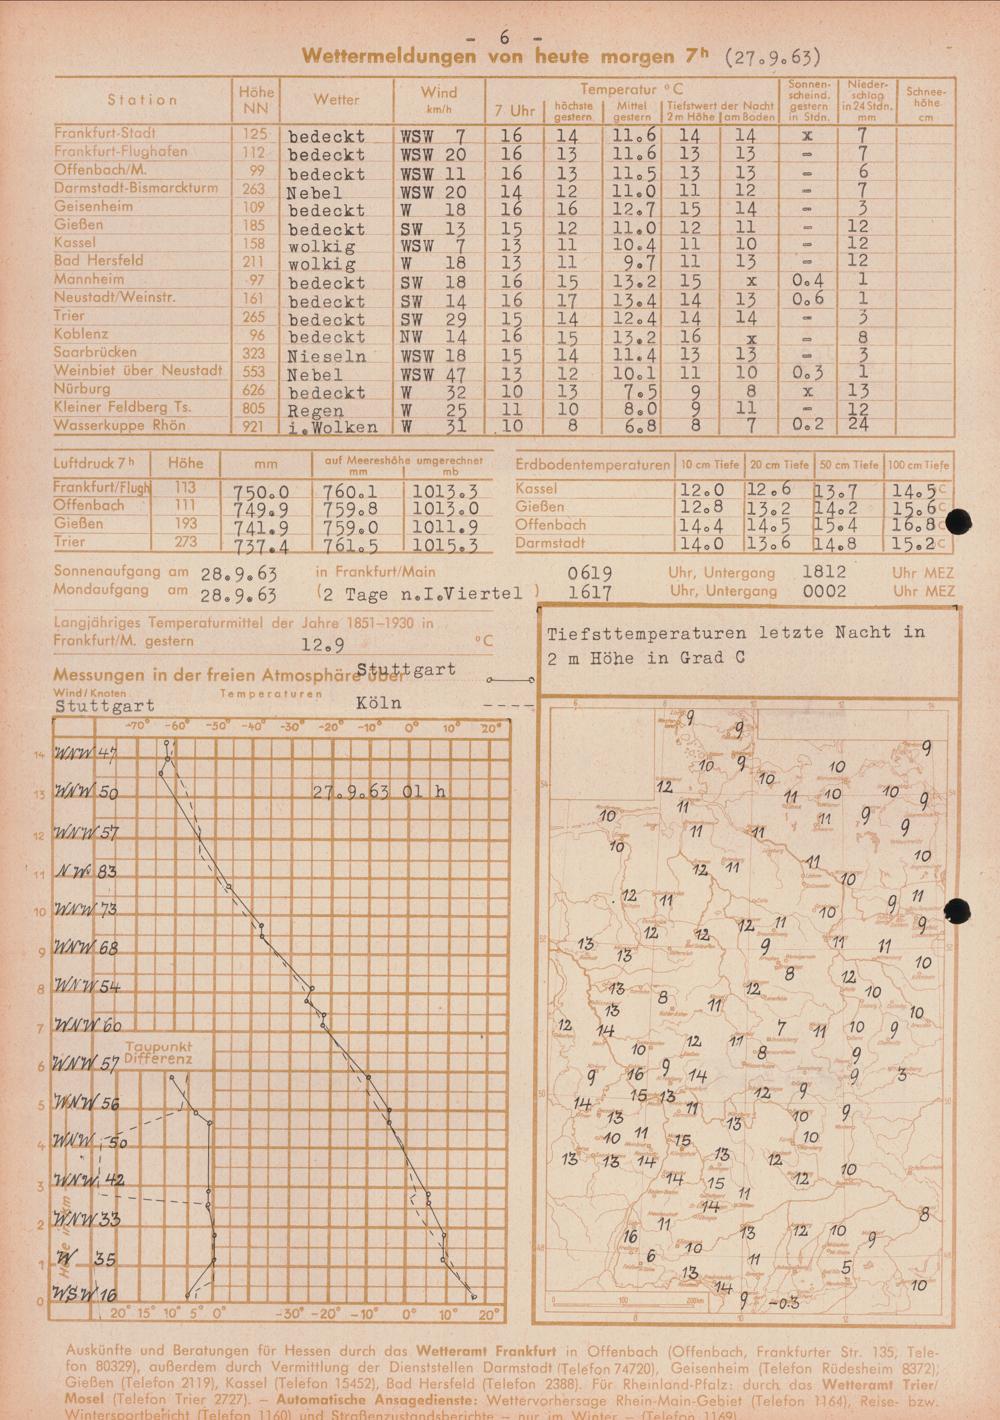 - 6 -
Wettermeldungen von heute morgen 7h (27.9.63)
Station Höhe NN Wetter Wind km/h Temperatur °C 7 Uhr höchste gestern Mittel gestern Tiefstwert der Nacht 2 m Höhe am Boden Sonnenscheind. gestern in Stdn. Niederschlag in 24 Stdn. mm Schneehöhe cm
Frankfurt-Stadt 125 bedeckt WSW 7 16 14 11.6 14 14 x 7
Frankfurt-Flughafen 112 bedeckt WSW 20 16 13 11.6 13 13 - 7
Offenbach/M. 99 bedeckt WSW 11 16 13 11.5 13 13 - 6
Darmstadt-Bismarckturm 263 Nebel WSW 20 14 12 11.0 11 12 - 7
Geisenheim 109 bedeckt W 18 16 16 12.7 15 14 - 3
Gießen 185 bedeckt SW 13 15 12 11.0 12 11 - 12
Kassel 158 wolkig WSW 7 13 11 10.4 11 10 - 12
Bad Hersfeld 211 wolkig W 18 13 11 9.7 11 13 - 12
Mannheim 97 bedeckt SW 18 16 15 13.2 15 x 0.4 1
Neustadt/Weinstr. 161 bedeckt SW 14 16 17 13.4 14 13 0.6 1
Trier 265 bedeckt SW 29 15 14 12.4 14 14 - 3
Koblenz 96 bedeckt NW 14 16 15 13.2 16 x - 8
Saarbrücken 323 Nieseln WSW 18 15 14 11.4 13 13 - 3
Weinbiet über Neustadt 553 Nebel WSW 47 13 12 10.1 11 10 0.3 1
Nürburg 626 bedeckt W 32 10 13 7.5 9 8 x 13
Kleiner Feldberg Ts. 805 Regen W 25 11 10 8.0 9 11 - 12
Wasserkuppe Rhön 921 i.Wolken W 31 10 8 6.8 8 7 0.2 24
Luftdruck 7h Höhe mm auf Meereshöhe umgerechnet mm mb
Frankfurt/Flugh 113 750.0 760.1 1013.3
Offenbach 111 749.9 759.8 1013.0
Gießen 193 741.9 759.0 1011.9
Trier 273 737.4 761.5 1015.3
Erdbodentemperaturen 10 cm Tiefe 20 cm Tiefe 50 cm Tiefe 100 cm Tiefe
Kassel 12.0 12.6 13.7 14.5°C
Gießen 12.8 13.2 14.2 15.6°C
Offenbach 14.4 14.5 15.4 16.8°C
Darmstadt 14.0 13.6 14.8 15.2°C
Sonnenaufgang am 28.9.63 in Frankfurt/Main 0619 Uhr, Untergang 1812 Uhr MEZ
Mondaufgang am 28.9.63 (2 Tage n.I.Viertel ) 1617 Uhr, Untergang 0002 Uhr MEZ
Langjähriges Temperaturmittel der Jahre 1851-1930 in
Frankfurt/M. gestern 12.9 °C
Messungen in der freien Atmosphäre über Stuttgart
Wind/Knoten Temperaturen
Stuttgart Köln
-70° -60° -50° -40° -30° -20° -10° 0° 10° 20°
14 WNW 47
13 WNW 50 27.9.63 01 h
12 WNW 57
11 NW 83
10 WNW 73
9 WNW 68
8 WNW 54
7 WNW 60
Taupunkt
Differenz
6 WNW 57
5 WNW 56
4 WNW 50
3 WNW 42
2 WNW 33
1 W 35
0 WSW 16
Höhe in km
20° 15° 10° 5° 0° -30° -20° -10° 0° 10° 20°
Tiefsttemperaturen letzte Nacht in
2 m Höhe in Grad C
9 9 9
10 9 10 10
12 11 11 10 10 9
10 11 11 11 9 9
10 12 11 11 10 10
12 11 10 9 11
12 12 12 11 9
13 13 9 11 11 10
13 8 8 12 10
13 11 12 10
12 14 7 11 10 9
10 12 11 8 9
9 16 9 14 9 3
14 15 13 11 12 9 9
13 13 10
10 11 15 10
13 13 14 13 12 10
14 15 11 12
14 8
16 11 13 12 10 9
6 10 11 5
13 14 10
9 -0.3
0 100 200km
Auskünfte und Beratungen für Hessen durch das Wetteramt Frankfurt in Offenbach (Offenbach, Frankfurter Str. 135, Tele-
fon 80329), außerdem durch Vermittlung der Dienststellen Darmstadt (Telefon 74720), Geisenheim (Telefon Rüdesheim 8372),
Gießen (Telefon 2119), Kassel (Telefon 15452), Bad Hersfeld (Telefon 2388). Für Rheinland-Pfalz: durch das Wetteramt Trier/
Mosel (Telefon Trier 2727). — Automatische Ansagedienste: Wettervorhersage Rhein-Main-Gebiet (Telefon 1164), Reise- bzw.
Wintersportbericht (Telefon 1160) und Straßenzustandsberichte — nur im Winter — (Telefon 1169)